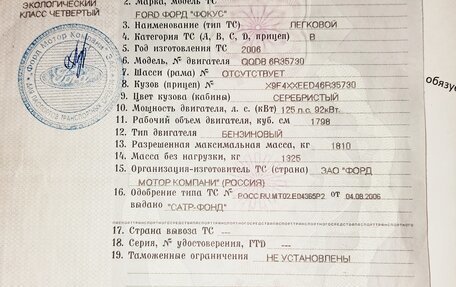 ЭКОЛОГИЧЕСКИЙ
КЛАСС ЧЕТВЕРТЫЙ
2. Марка, модель ТС
FORD ФОРД "ФОКУС"
3. Наименование (тип ТС) ЛЕГКОВОЙ
4. Категория ТС (A, B, C, D, прицеп) B
5. Год изготовления ТС 2006
6. Модель, № двигателя QQDB 6R35730
7. Шасси (рама) № ОТСУТСТВУЕТ
8. Кузов (прицеп) № X9F4XXEED46R35730
9. Цвет кузова (кабины) СЕРЕБРИСТЫЙ
10. Мощность двигателя, л. с. (кВт) 125 л.с. 92кВт.
11. Рабочий объем двигателя, куб. см 1798
12. Тип двигателя БЕНЗИНОВЫЙ
13. Разрешенная максимальная масса, кг 1810
14. Масса без нагрузки, кг 1325
15. Организация-изготовитель ТС (страна) ЗАО "ФОРД
МОТОР КОМПАНИ" (РОССИЯ)
16. Одобрение типа ТС № РОСС RU.MT02.E04365P2 от 04.08.2006
выдано "САТР-ФОНД"
17. Страна вывоза ТС ---
18. Серия, № удостоверения, ГТД ---
19. Таможенные ограничения НЕ УСТАНОВЛЕНЫ
обязуе